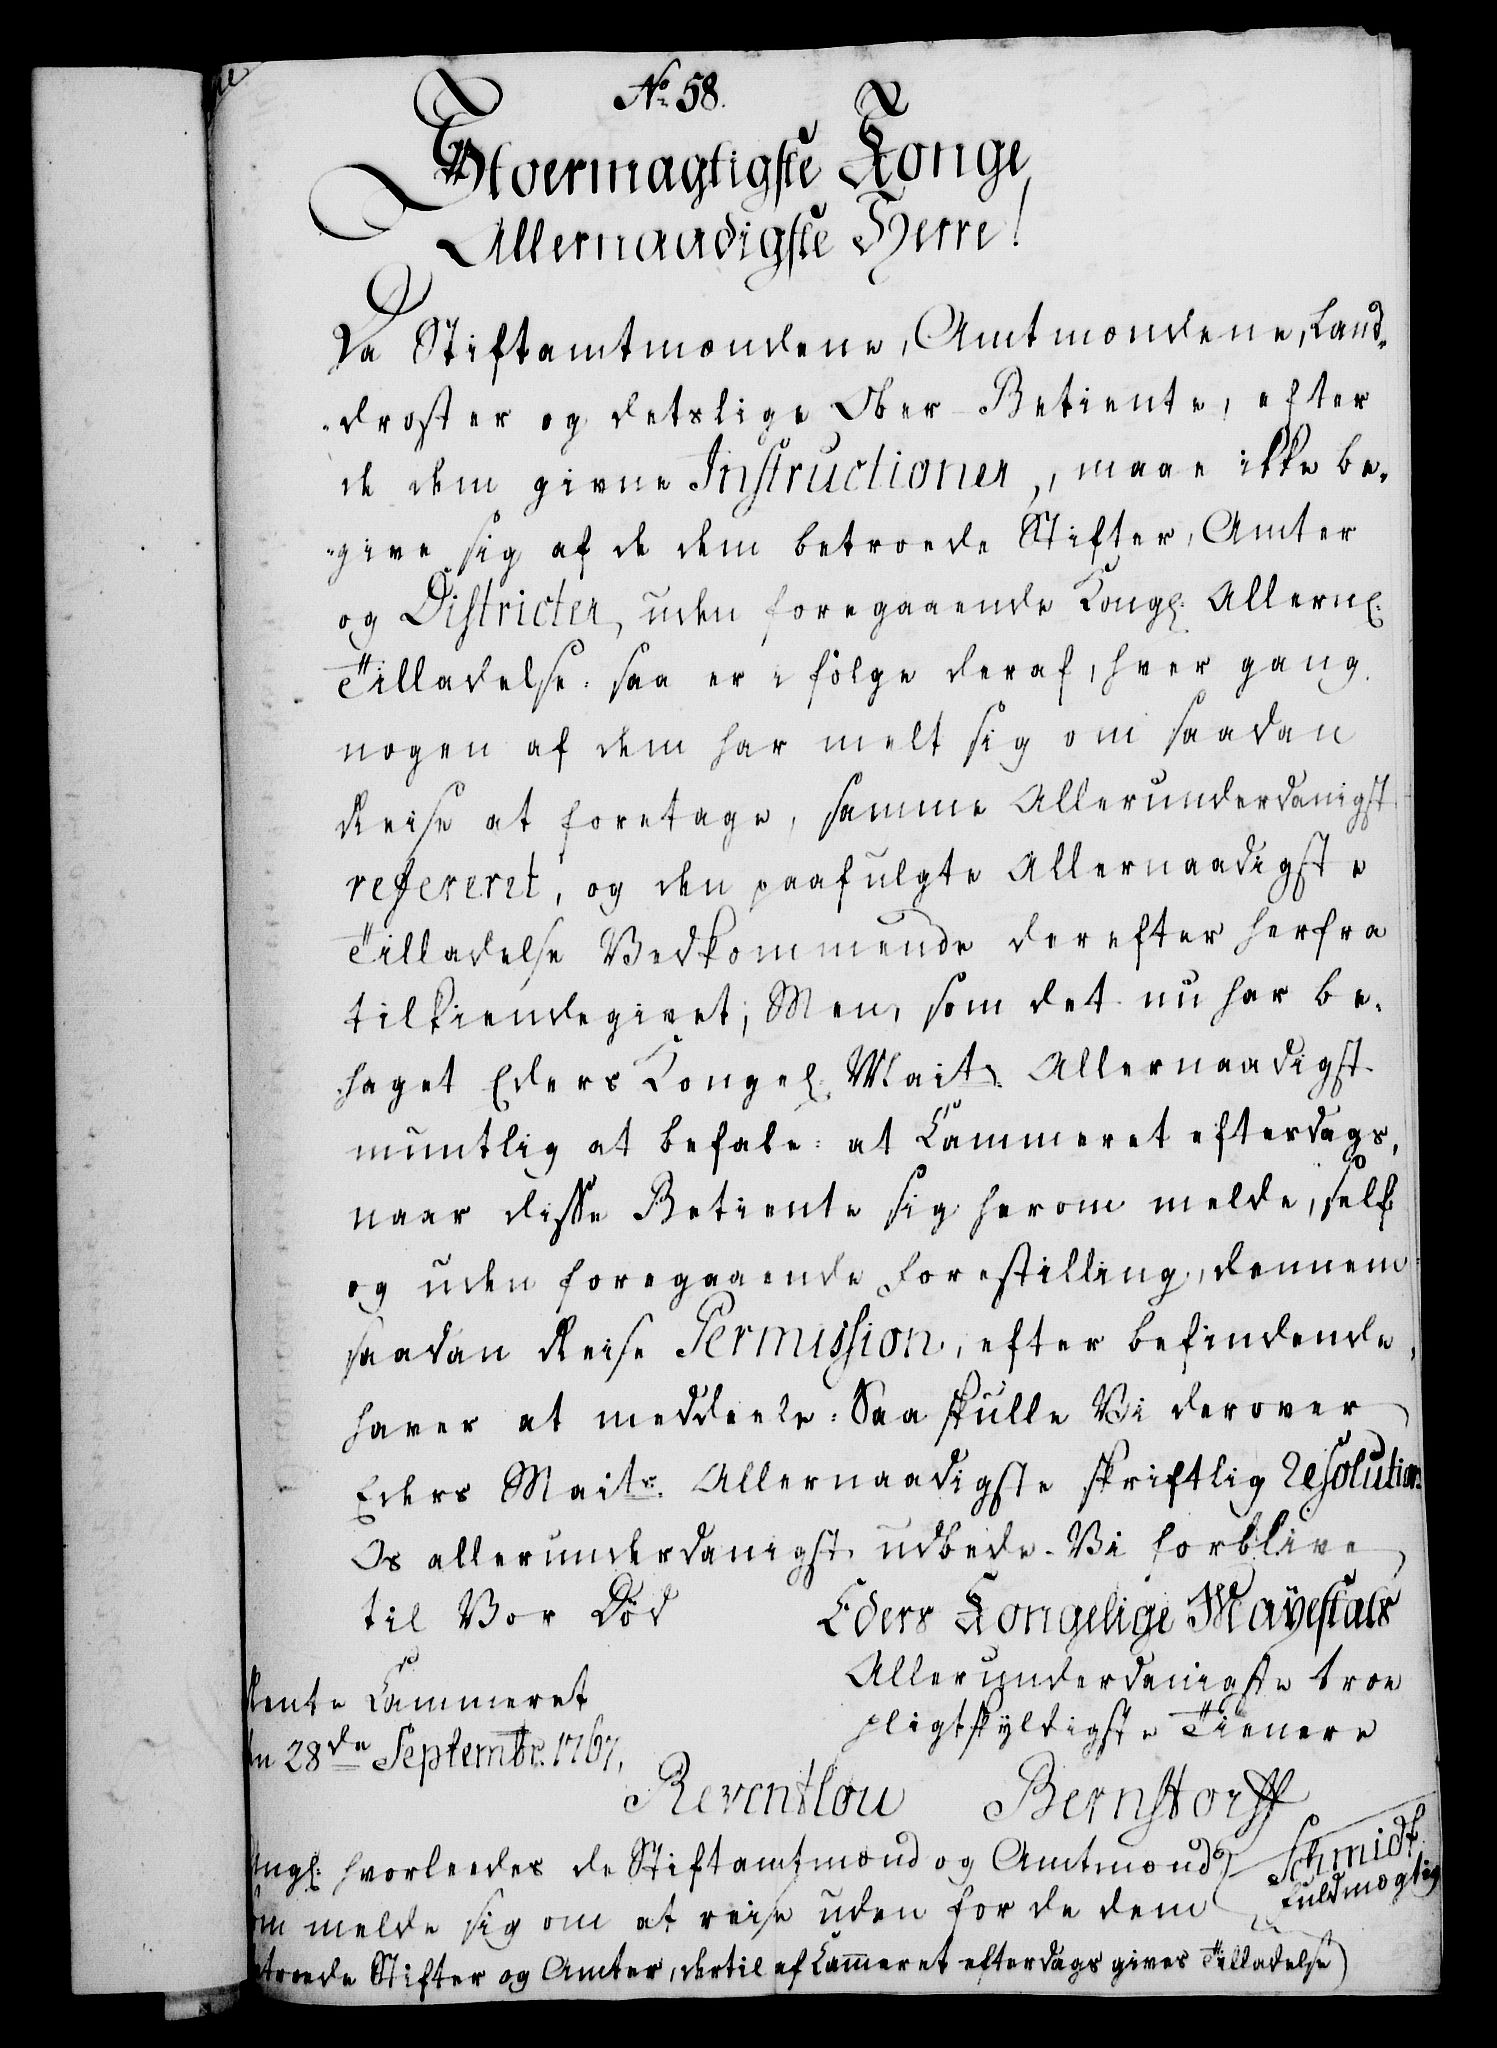 No. 58.
Stoermagtigste Konge
Allernaadigste Herre!
Da Stiftamtmændene, Amtmændene, Land-
-droster og detslige Ober-Betiente, efter
de dem givne Instructioner, maae ikke be-
-give sig af de dem betroede Stifter, Amter
og Districter, uden foregaaende Kongl. Allern.
Tilladelse: saa er i følge deraf, hver gang
nogen af dem har melt sig om saadan
Reise at foretage, samme Allerunderdanigst
refereret, og den paafulgte Allernaadigste
Tilladelse Vedkommende derefter herfra
tilkiendegivet; Men, som det nu har be-
-haget Eders Kongel. Maits. Allernaadigst
muntlig at befale: at Cammeret efterdags,
naar disse Betiente sig herom melde, self
og uden foregaaende Forestilling, dennem
saadan Reise Permission, efter befindende,
haver at meddeele: Saa skulle Vi derover
Eders Maits. Allernaadigste skriftlig Resolution
Os allerunderdanigst udbede. Vi forblive
til Vor Død
Eders Kongelige Mayestæts
Allerunderdanigste troe
pligtskyldigste Tienere
Rente Cammeret
den 28de Septembr. 1767.
Reventlou Bernstorff
Schmidt
Fuldmægtig
Angl. hvorledes de Stiftamtmænd og Amtmænd
som melde sig om at reise uden for de dem
betroede Stifter og Amter, dertil af Cammeret efterdags gives Tilladelse)